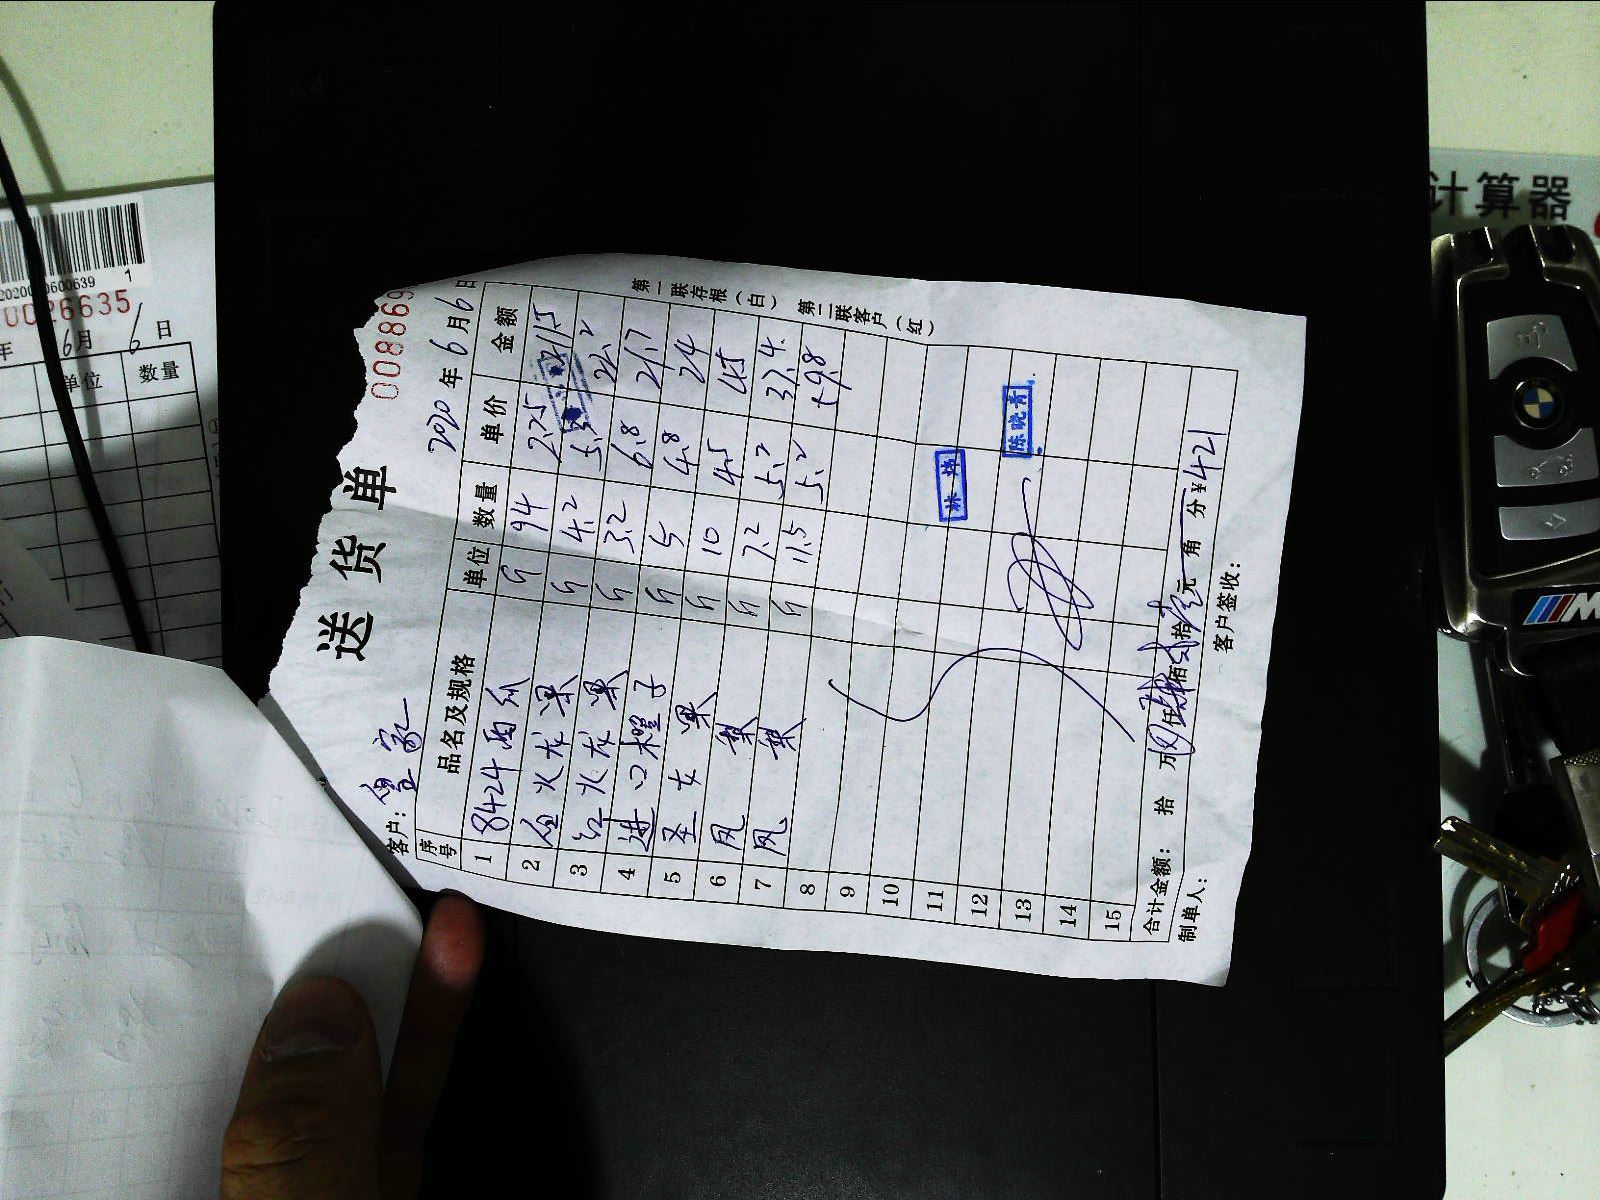 送货单
008869
客户：宜家
2020年6月6日
序号 品名及规格 单位 数量 单价 金额
1 8424西瓜 斤 94 2.25 211.5
2 白火龙果 斤 4.2 22.2
3 红火龙果 斤 3.2 6.8 21.7
4 进口橙子 斤 5 4.8 24
5 圣女果 斤 10 4.5 45
6 凤梨 斤 7.2 5.2 37.4
7 凤梨 斤 11.5 5.2 59.8
8
9
10
11
12
13
14
15
林婷
陈晓青
合计金额： 拾 万 仟 肆佰贰拾壹元 角 分 ¥421
制单人： 客户签收：
第一联存根（白） 第二联客户（红）
1
0026635
年 6月 6日
单位 数量
计算器
M